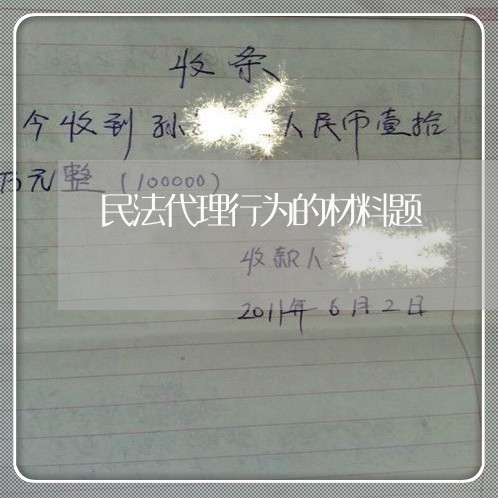 收条
今收到孙 人民币壹拾
万元整(100000)
民法代理行为的材料题
收款人
2011年6月2日